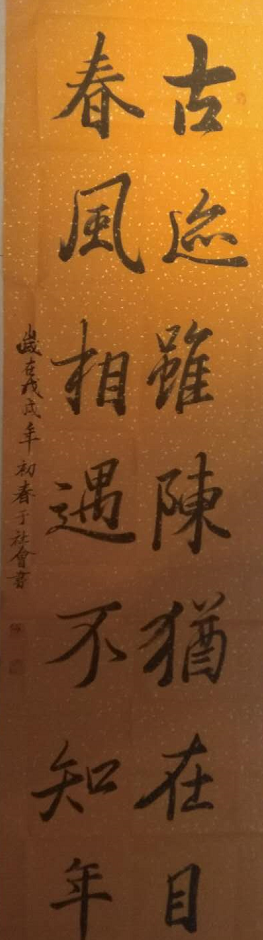 古迹雖陳猶在目
春風相遇不知年
歲在戊戌年初春于社會書